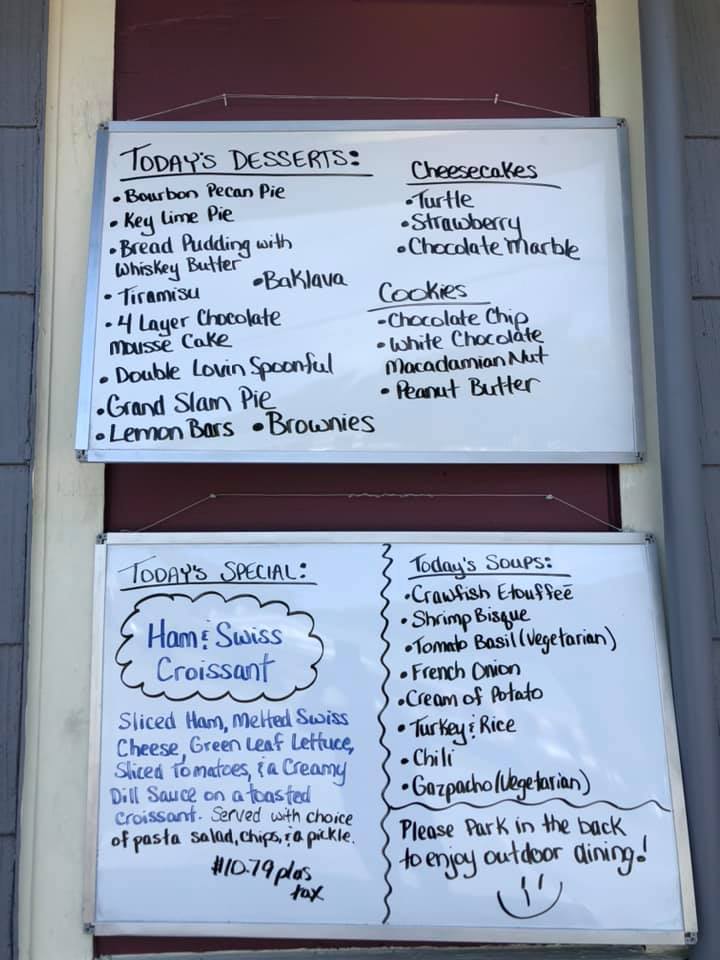 TODAY'S DESSERTS:
• Bourbon Pecan Pie
• Key Lime Pie
• Bread Pudding with
Whiskey Butter
• Tiramisu
• Baklava
• 4 Layer Chocolate
Mousse Cake
• Double Lovin Spoonful
• Grand Slam Pie
• Lemon Bars • Brownies
Cheesecakes
• Turtle
• Strawberry
• Chocolate Marble
Cookies
• Chocolate Chip
• White Chocolate
Macadamian Nut
• Peanut Butter
TODAY'S SPECIAL:
Ham & Swiss
Croissant
Sliced Ham, Melted Swiss
Cheese, Green Leaf Lettuce,
Sliced Tomatoes, & a Creamy
Dill Sauce on a toasted
croissant. Served with choice
of pasta salad, chips, & a pickle.
$10.79 plus
tax
Today's Soups:
• Crawfish Etouffeé
• Shrimp Bisque
• Tomato Basil (Vegetarian)
• French Onion
• Cream of Potato
• Turkey & Rice
• Chili
• Gazpacho (Vegetarian)
Please Park in the back
to enjoy outdoor dining!